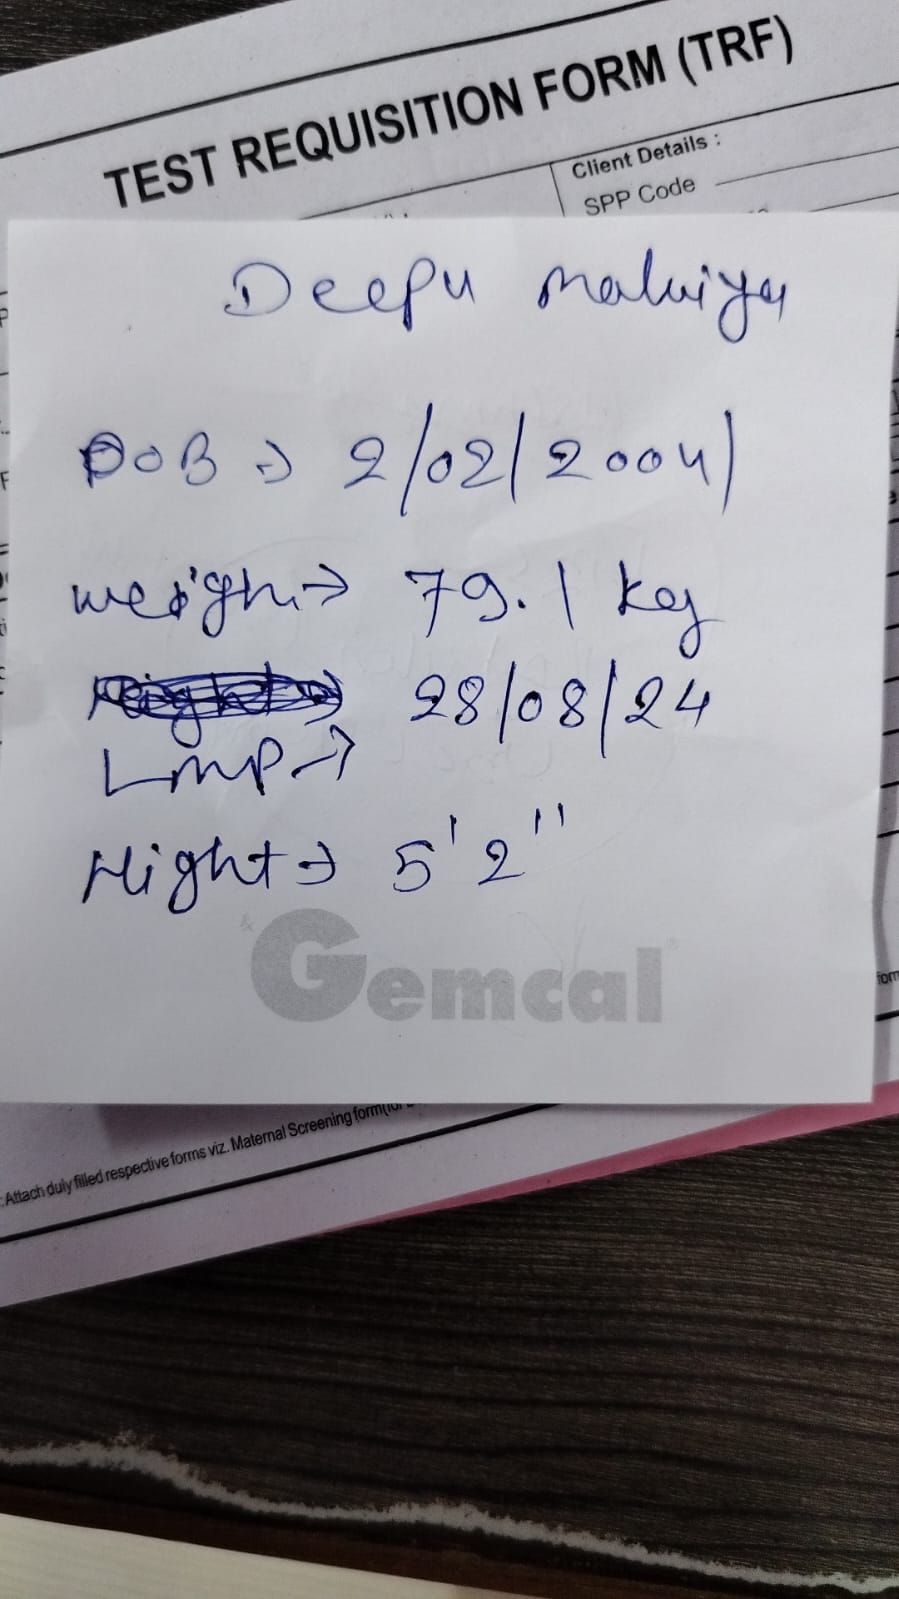 TEST REQUISITION FORM (TRF)
Client Details :
SPP Code
Deepu malviya
DOB → 2/02/2004)
weigh.→ 79.1 kg
28/08/24
Lmp →
Hight → 5'2"
Gemcal
:Attach duly filled respective forms viz. Maternal Screening form(for